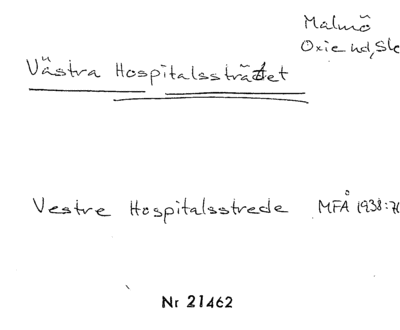 Malmö
Oxie hd, Sk
Västra Hospitalssträtet
Vestre Hospitalsstrede MFÅ 1938:7
Nr 21462